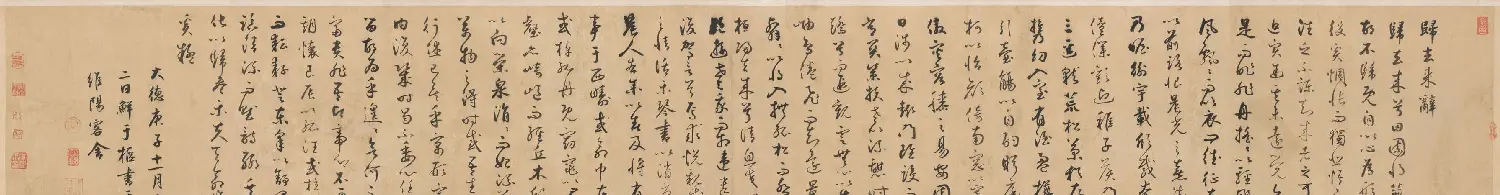 歸去來辭
歸去来兮田園將
胡不歸既自以心為形
役奚惆悵而獨悲悟
往之不諫知来者之可
迷其未遠覺今
是而非舟搖以輕
風飄々而吹衣問征夫
以前路恨晨光之熹
乃瞻衡宇載欣載奔
僮僕歡迎稚子候門
三逕就荒松菊猶存
携幼入室有酒盈
引壺觴以自酌眄庭
柯以怡顏倚南窓
傲審容膝之易安園
日涉以成趣門雖設而
常關策扶老以流憩時
矯首而遐觀雲無心以
岫鳥倦飛而知還景
翳々以將入撫孤松而
桓歸去来兮請息交
復駕言兮焉求悦親
之情話樂琴書以消憂
農人告余以春及將有
事于西疇或命巾車
或棹孤舟既窈窕以
壑亦崎嶇而經丘木欣
以向榮泉涓々而始流
萬物之得時感吾生
行休已矣乎寓形宇
内復幾時曷不委心任
留胡為乎遑々兮何之
富貴非吾事帝不可
期懷良辰以孤往或植
而耘耔登東皋以舒
臨清流而賦詩聊乘
化以歸盡樂夫天命
奚疑
大德庚子十一月
二日鮮于樞書
維陽客舍